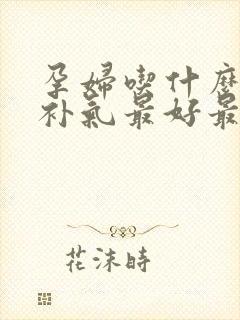 孕婦喫什麽
补氣最好最
花沫時